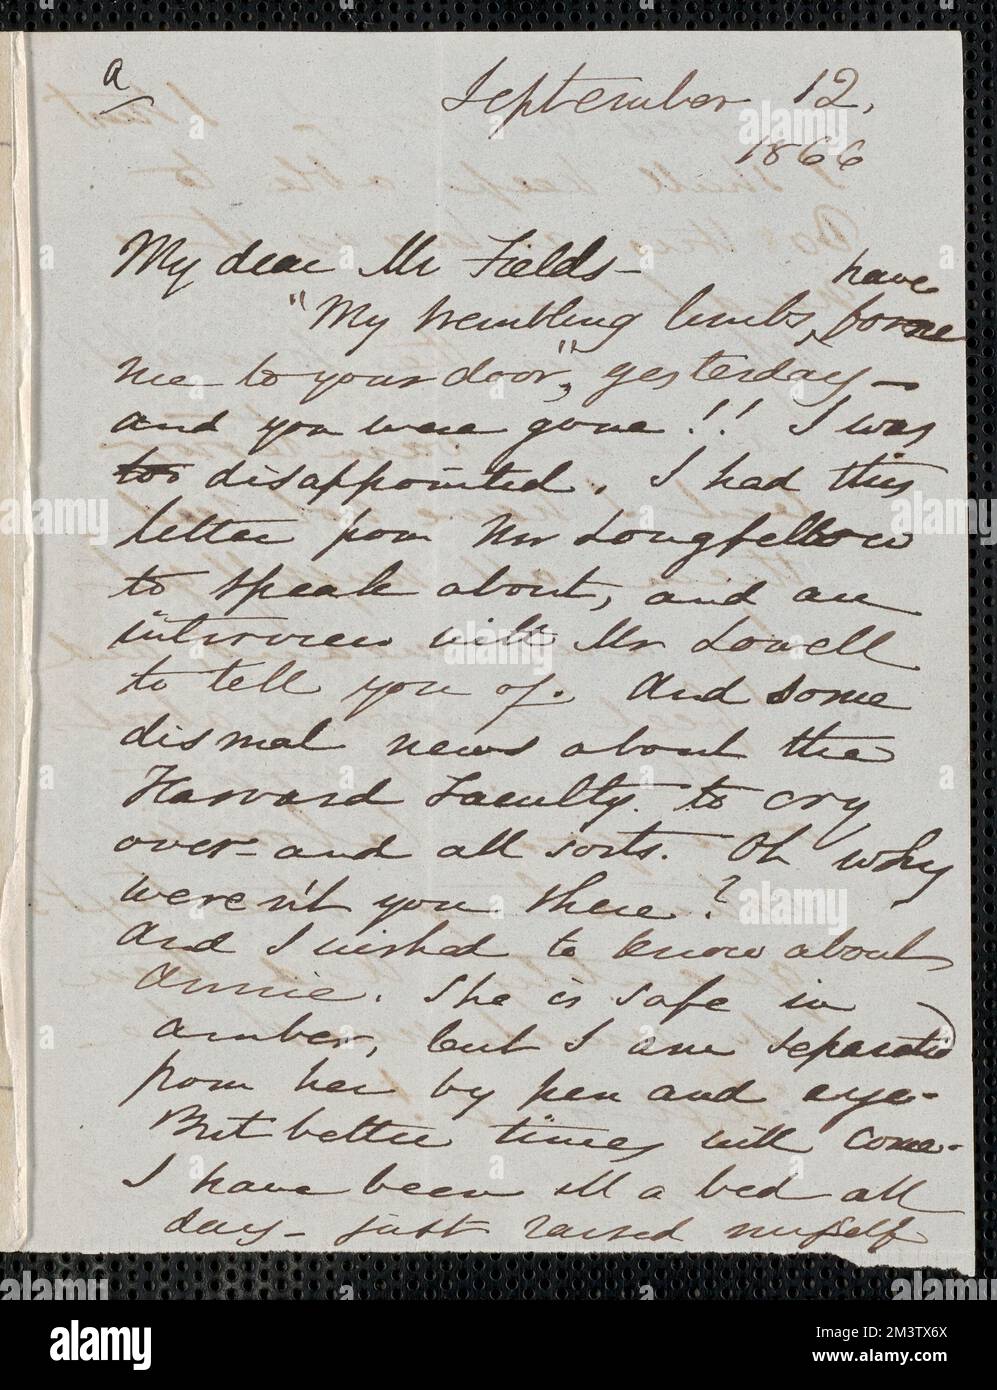 a
September 12,
1866
My dear Mr Fields-
have
"My trembling limbs, borne
me to your door", yesterday-
and you were gone!! I was
too disappointed. I had this
letter from Mr Longfellow
to speak about, and an
interview with Mr Lowell
to tell you of. And some
dismal news about the
Harvard Faculty. to cry
over- and all sorts. Oh why
weren't you there?
And I wished to know about
Annie. She is safe in
amber, but I am separated
from her by pen and eye-
But better times will come-
I have been ill a bed all
day- just raised myself
alamy
Image ID: 2M3TX6X
www.alamy.com